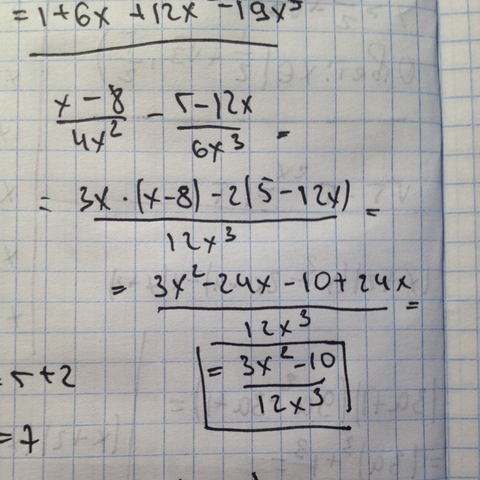 = 1 + 6x + 12x - 19x³
x - 8 / 4x² - 5 - 12x / 6x³ =
= 3x · (x - 8) - 2(5 - 12x) / 12x³ =
= 3x² - 24x - 10 + 24x / 12x³ =
= 3x² - 10 / 12x³
= 5 + 2
= 7